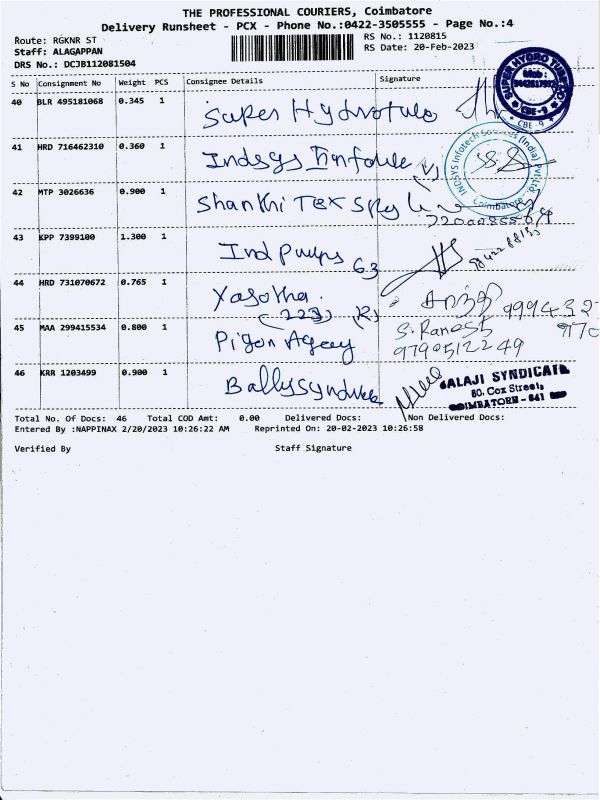 THE PROFESSIONAL COURIERS, Coimbatore
Delivery Runsheet - PCX - Phone No.:0422-3505555 - Page No.:4
Route: RGKNR ST
RS No.: 1120815
Staff: ALAGAPPAN
RS Date: 20-Feb-2023
DRS No.: DCJB112081504
S No Consignment No Weight PCS Consignee Details Signature
40 BLR 495181068 0.345 1 Super Hydrotube
SUPER HYDRO
CBE-9
41 HRD 716462310 0.360 1 Indsys
INDSYS Infotech Services (India) Pvt Ltd
Coimbatore
42 MTP 3026636 0.900 1 Shankhi Tex
43 KPP 7399100 1.300 1 Ind Pumps 63
44 HRD 731070672 0.765 1 Yasotha
(223) (R)
9994327
45 MAA 299415534 0.800 1 Pigon Agecy
S. Ramesh
9790512249
46 KRR 1203499 0.900 1 Bally Syndikee
BALAJI SYNDICATE
80, Cox Street,
COIMBATORE - 641
Total No. Of Docs: 46 Total COD Amt: 0.00 Delivered Docs: Non Delivered Docs:
Entered By :NAPPINAX 2/20/2023 10:26:22 AM Reprinted On: 20-02-2023 10:26:58
Verified By Staff Signature